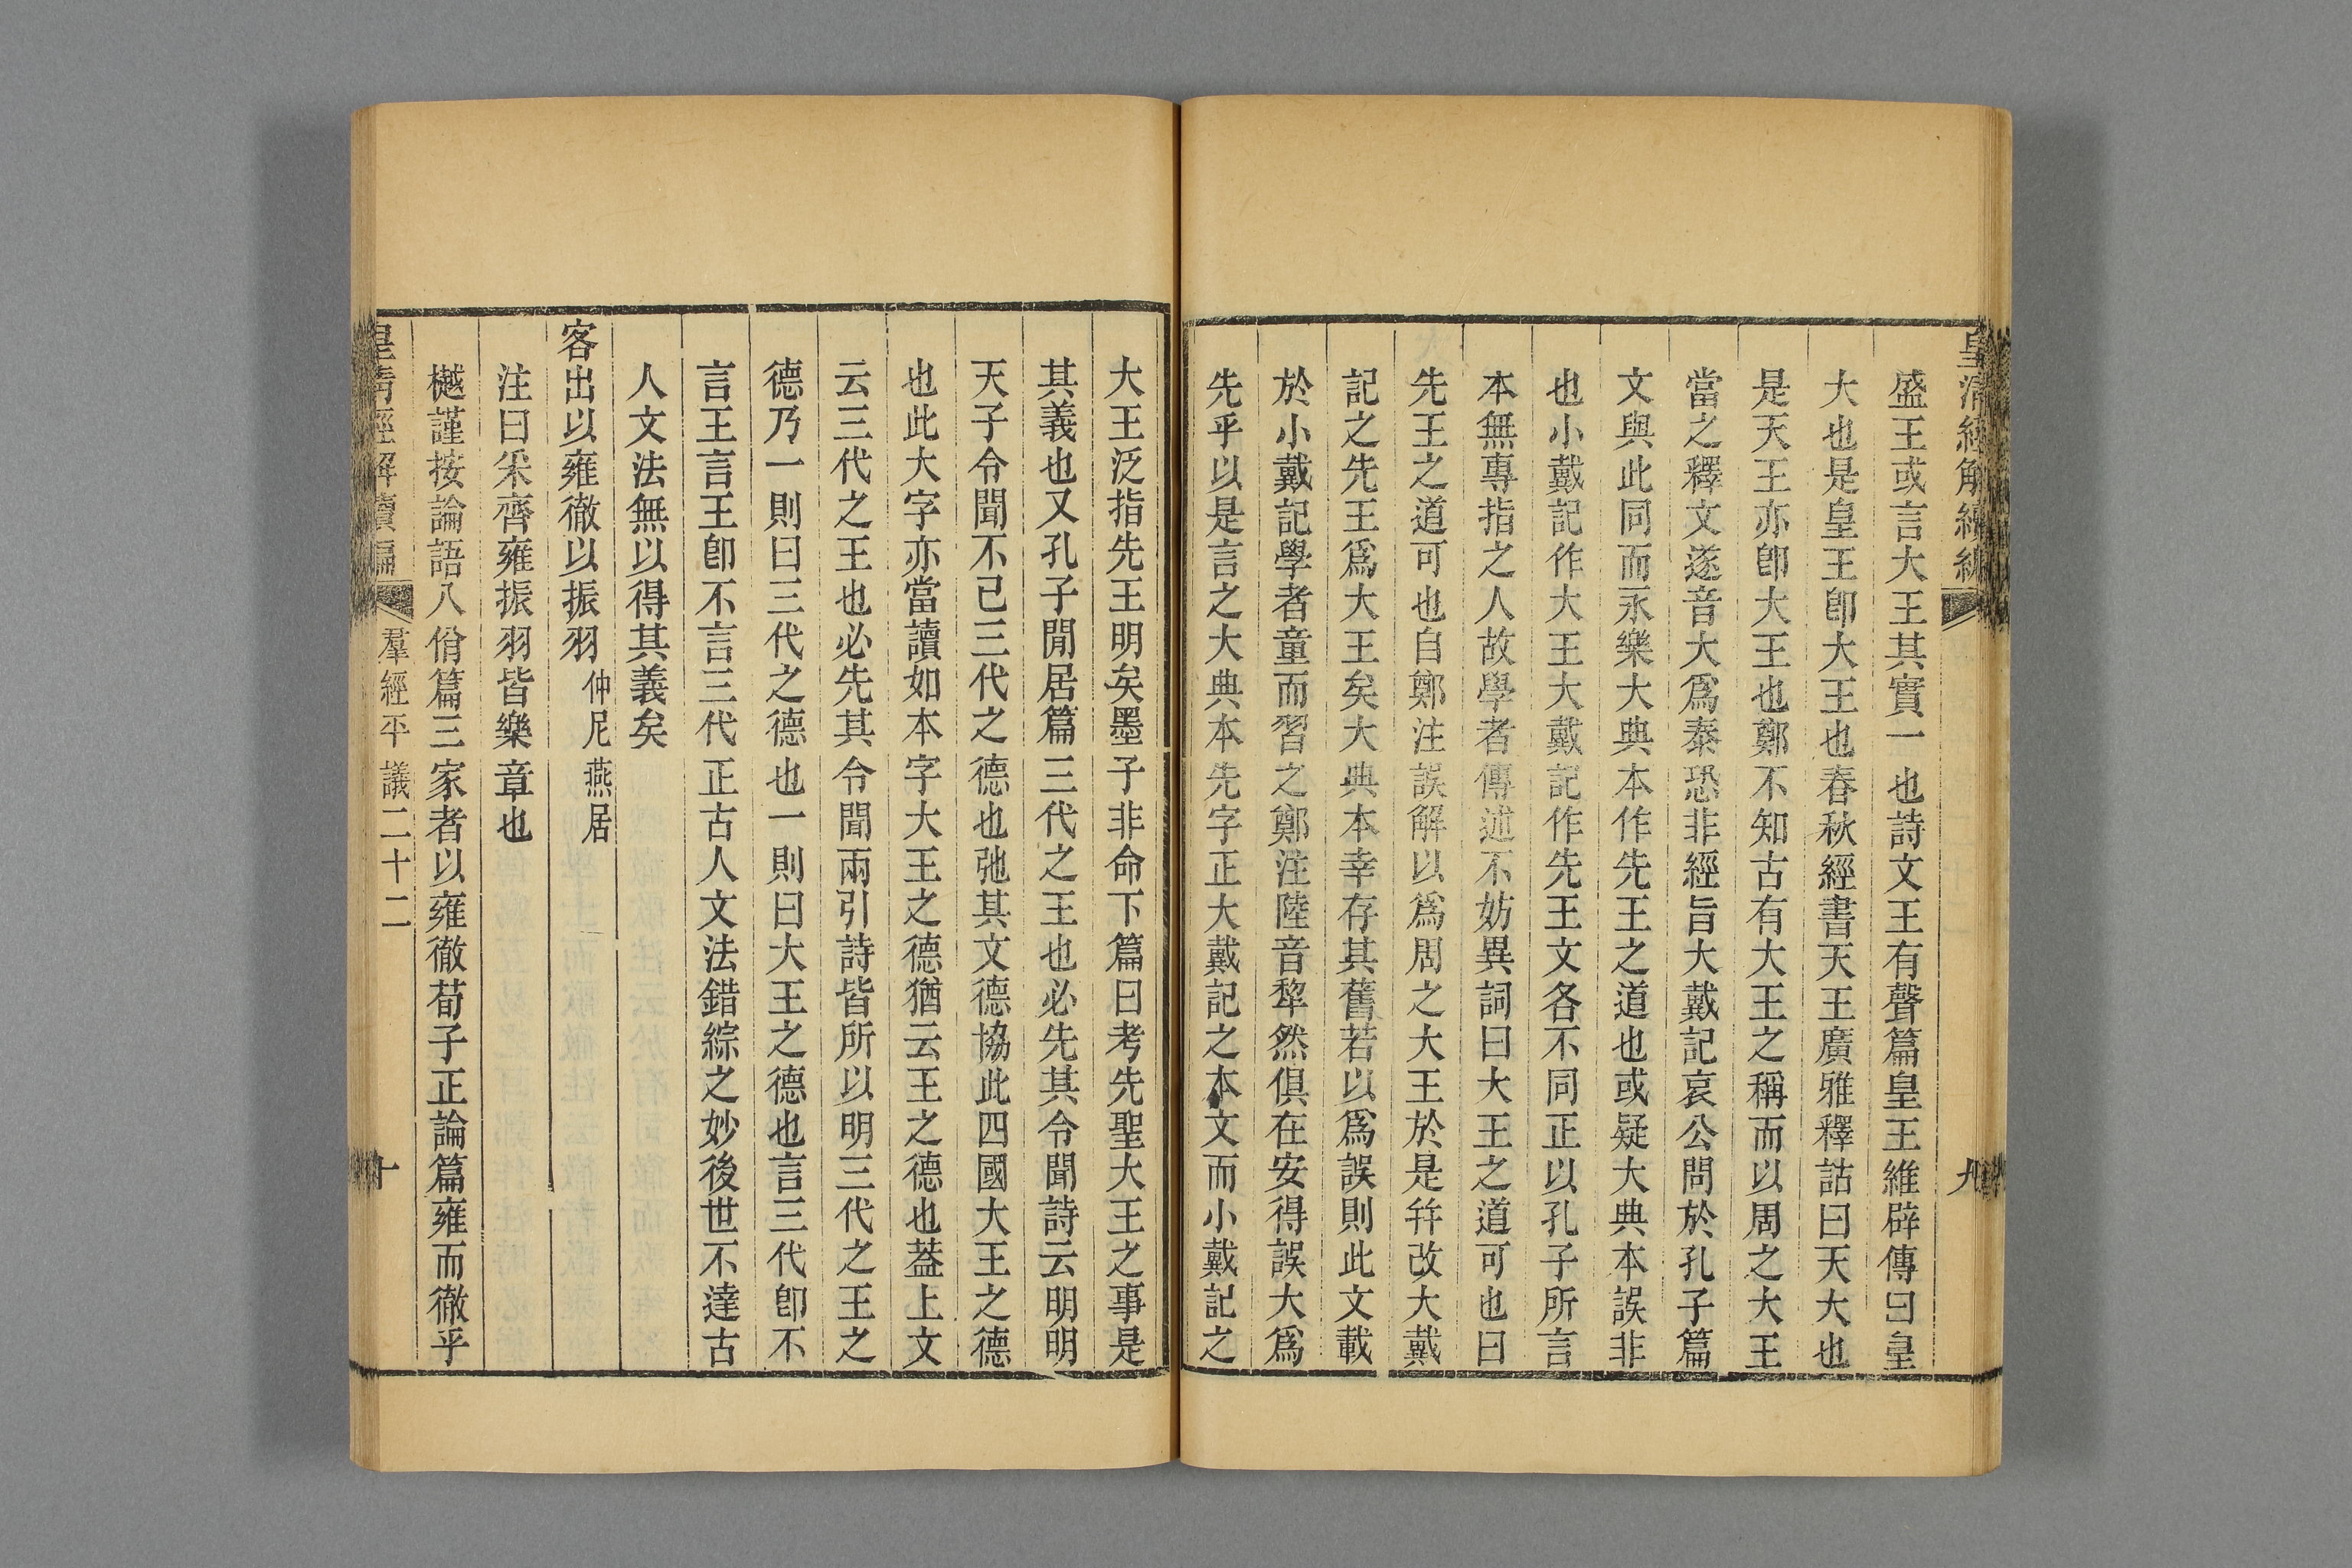 皇清經解續編
九
盛王或言大王其實一也詩文王有聲篇皇王維辟傳曰皇
大也是皇王卽大王也春秋經書天王廣雅釋詁曰天大也
是天王亦卽大王也鄭不知古有大王之稱而以周之大王
當之釋文遂音大爲泰恐非經旨大戴記哀公問於孔子篇
文與此同而永樂大典本作先王之道也或疑大典本誤非
也小戴記作大王大戴記作先王文各不同正以孔子所言
本無專指之人故學者傳述不妨異詞曰大王之道可也曰
先王之道可也自鄭注誤解以爲周之大王於是并改大戴
記之先王爲大王矣大典本幸存其舊若以爲誤則此文載
於小戴記學者童而習之鄭注陸音犂然俱在安得誤大爲
先乎以是言之大典本先字正大戴記之本文而小戴記之
大王泛指先王明矣墨子非命下篇曰考先聖大王之事是
其義也又孔子閒居篇三代之王也必先其令聞詩云明明
天子令聞不已三代之德也弛其文德協此四國大王之德
也此大字亦當讀如本字大王之德猶云王之德也蓋上文
云三代之王也必先其令聞兩引詩皆所以明三代之王之
德乃一則曰三代之德也一則曰大王之德也言三代卽不
言王言王卽不言三代正古人文法錯綜之妙後世不達古
人文法無以得其義矣
客出以雍徹以振羽仲尼燕居
注曰采齊雍振羽皆樂章也
樾謹按論語八佾篇三家者以雍徹荀子正論篇雍而徹乎
皇清經解續編
羣經平議二十二
十